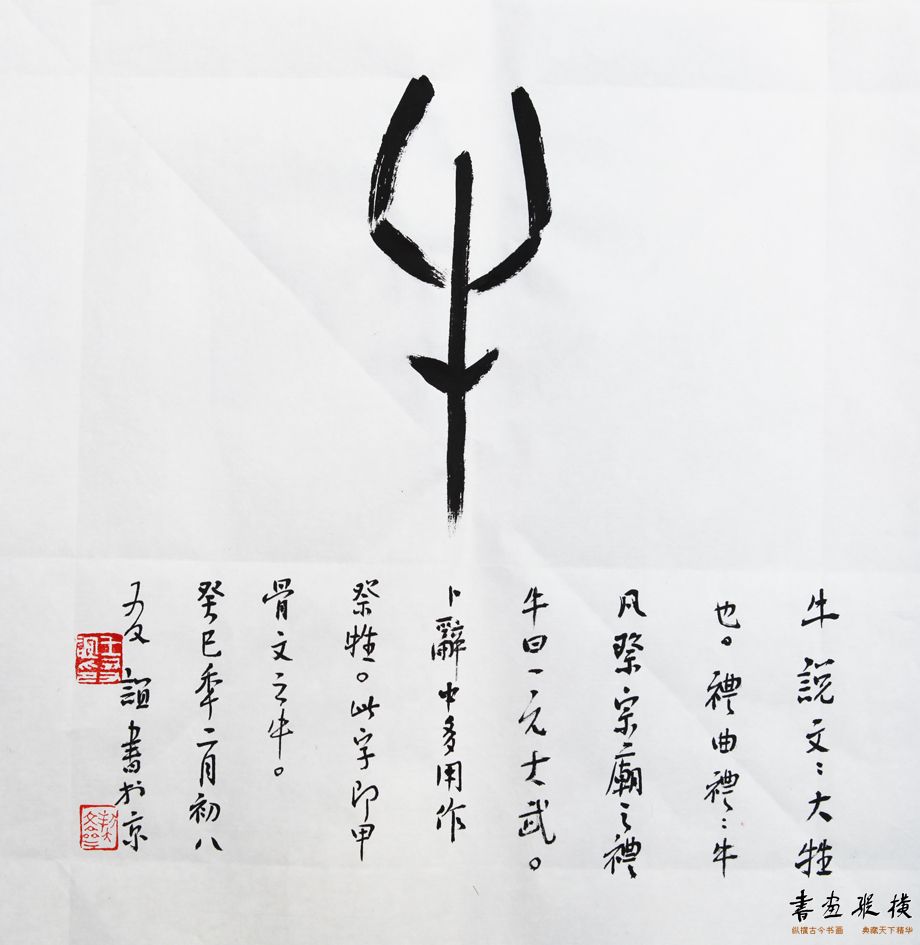 牛
牛說文：大牲
也。禮曲禮：牛
凡祭宗廟之禮
牛曰一元大武。
卜辭中多用作
祭牲。此字即甲
骨文之牛。
癸巳秊二月初八
友誼書於京
王友誼印
書畫縱橫
纵横古今书画 典藏天下精华